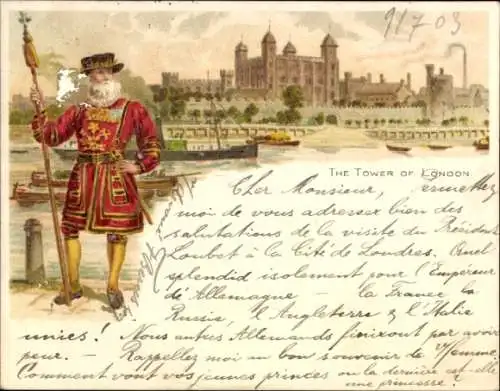 9/7 03
THE TOWER OF LONDON
Cher Monsieur, Permettez
moi de vous adresser bien des
salutations de la visite du Président
Loubet à la Cité de Londres. Quel
splendid isolement pour l'Empereur
de Allemagne — la France la
Russie, l'Angleterre & l'Italie
unies! Nous autres Allemands finiront par avoir
peur. — Rappelez moi au bon souvenir de
Comment vont vos jeunes princes ou la dernière est-elle
une princesse?